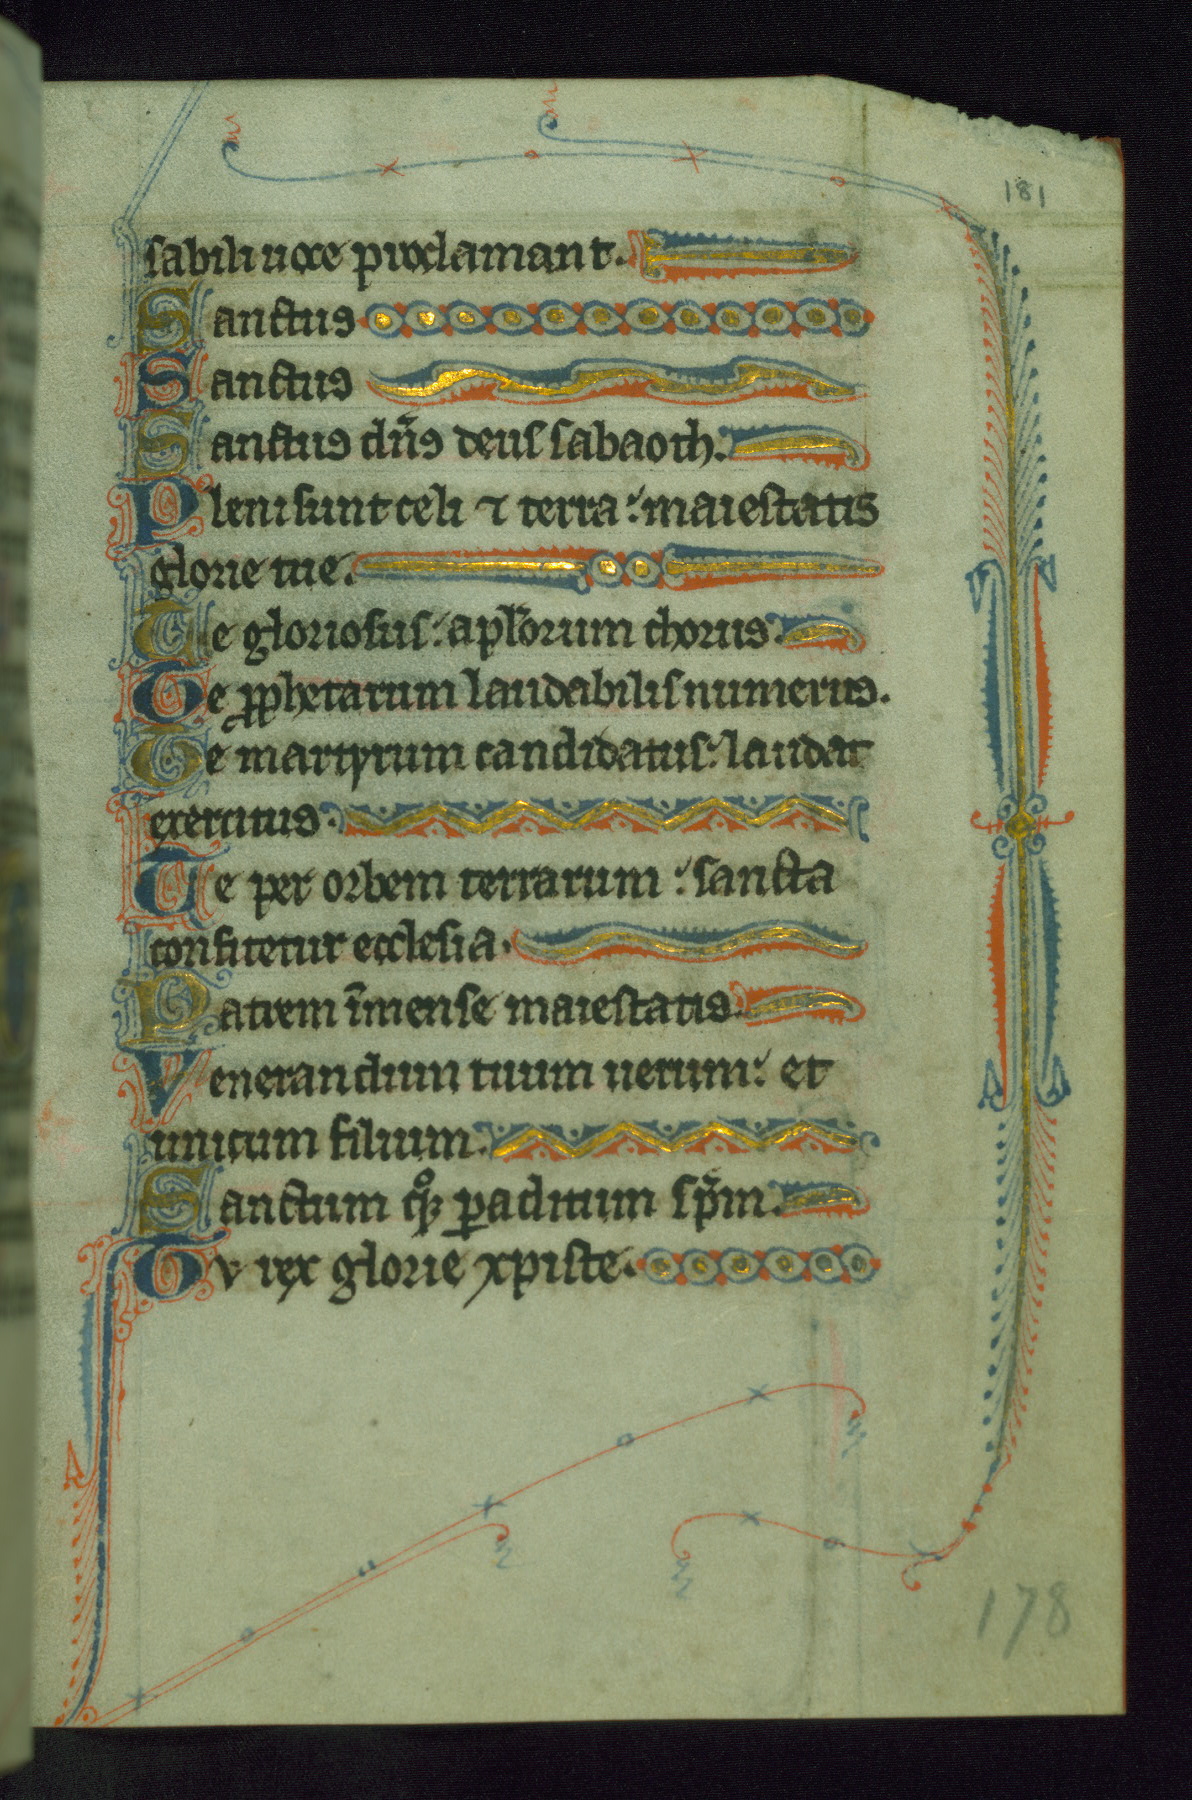 181
sabili uoce proclamant.
Sanctus
Sanctus
Sanctus dn̄s deus sabaoth.
Pleni sunt celi ⁊ terra: maiestatis
glorie tue.
Te gloriosus: apl̄orum chorus.
Te pphetarum laudabilis numerus.
Te martyrum candidatus: laudat
exercitus.
Te per orbem terrarum: sancta
confitetur ecclesia.
Patrem īmense maiestatis.
Venerandum tuum uerum: et
unicum filium.
Sanctum qͦꝫ paclitum sp̄m.
Tu rex glorie xpiste.
178